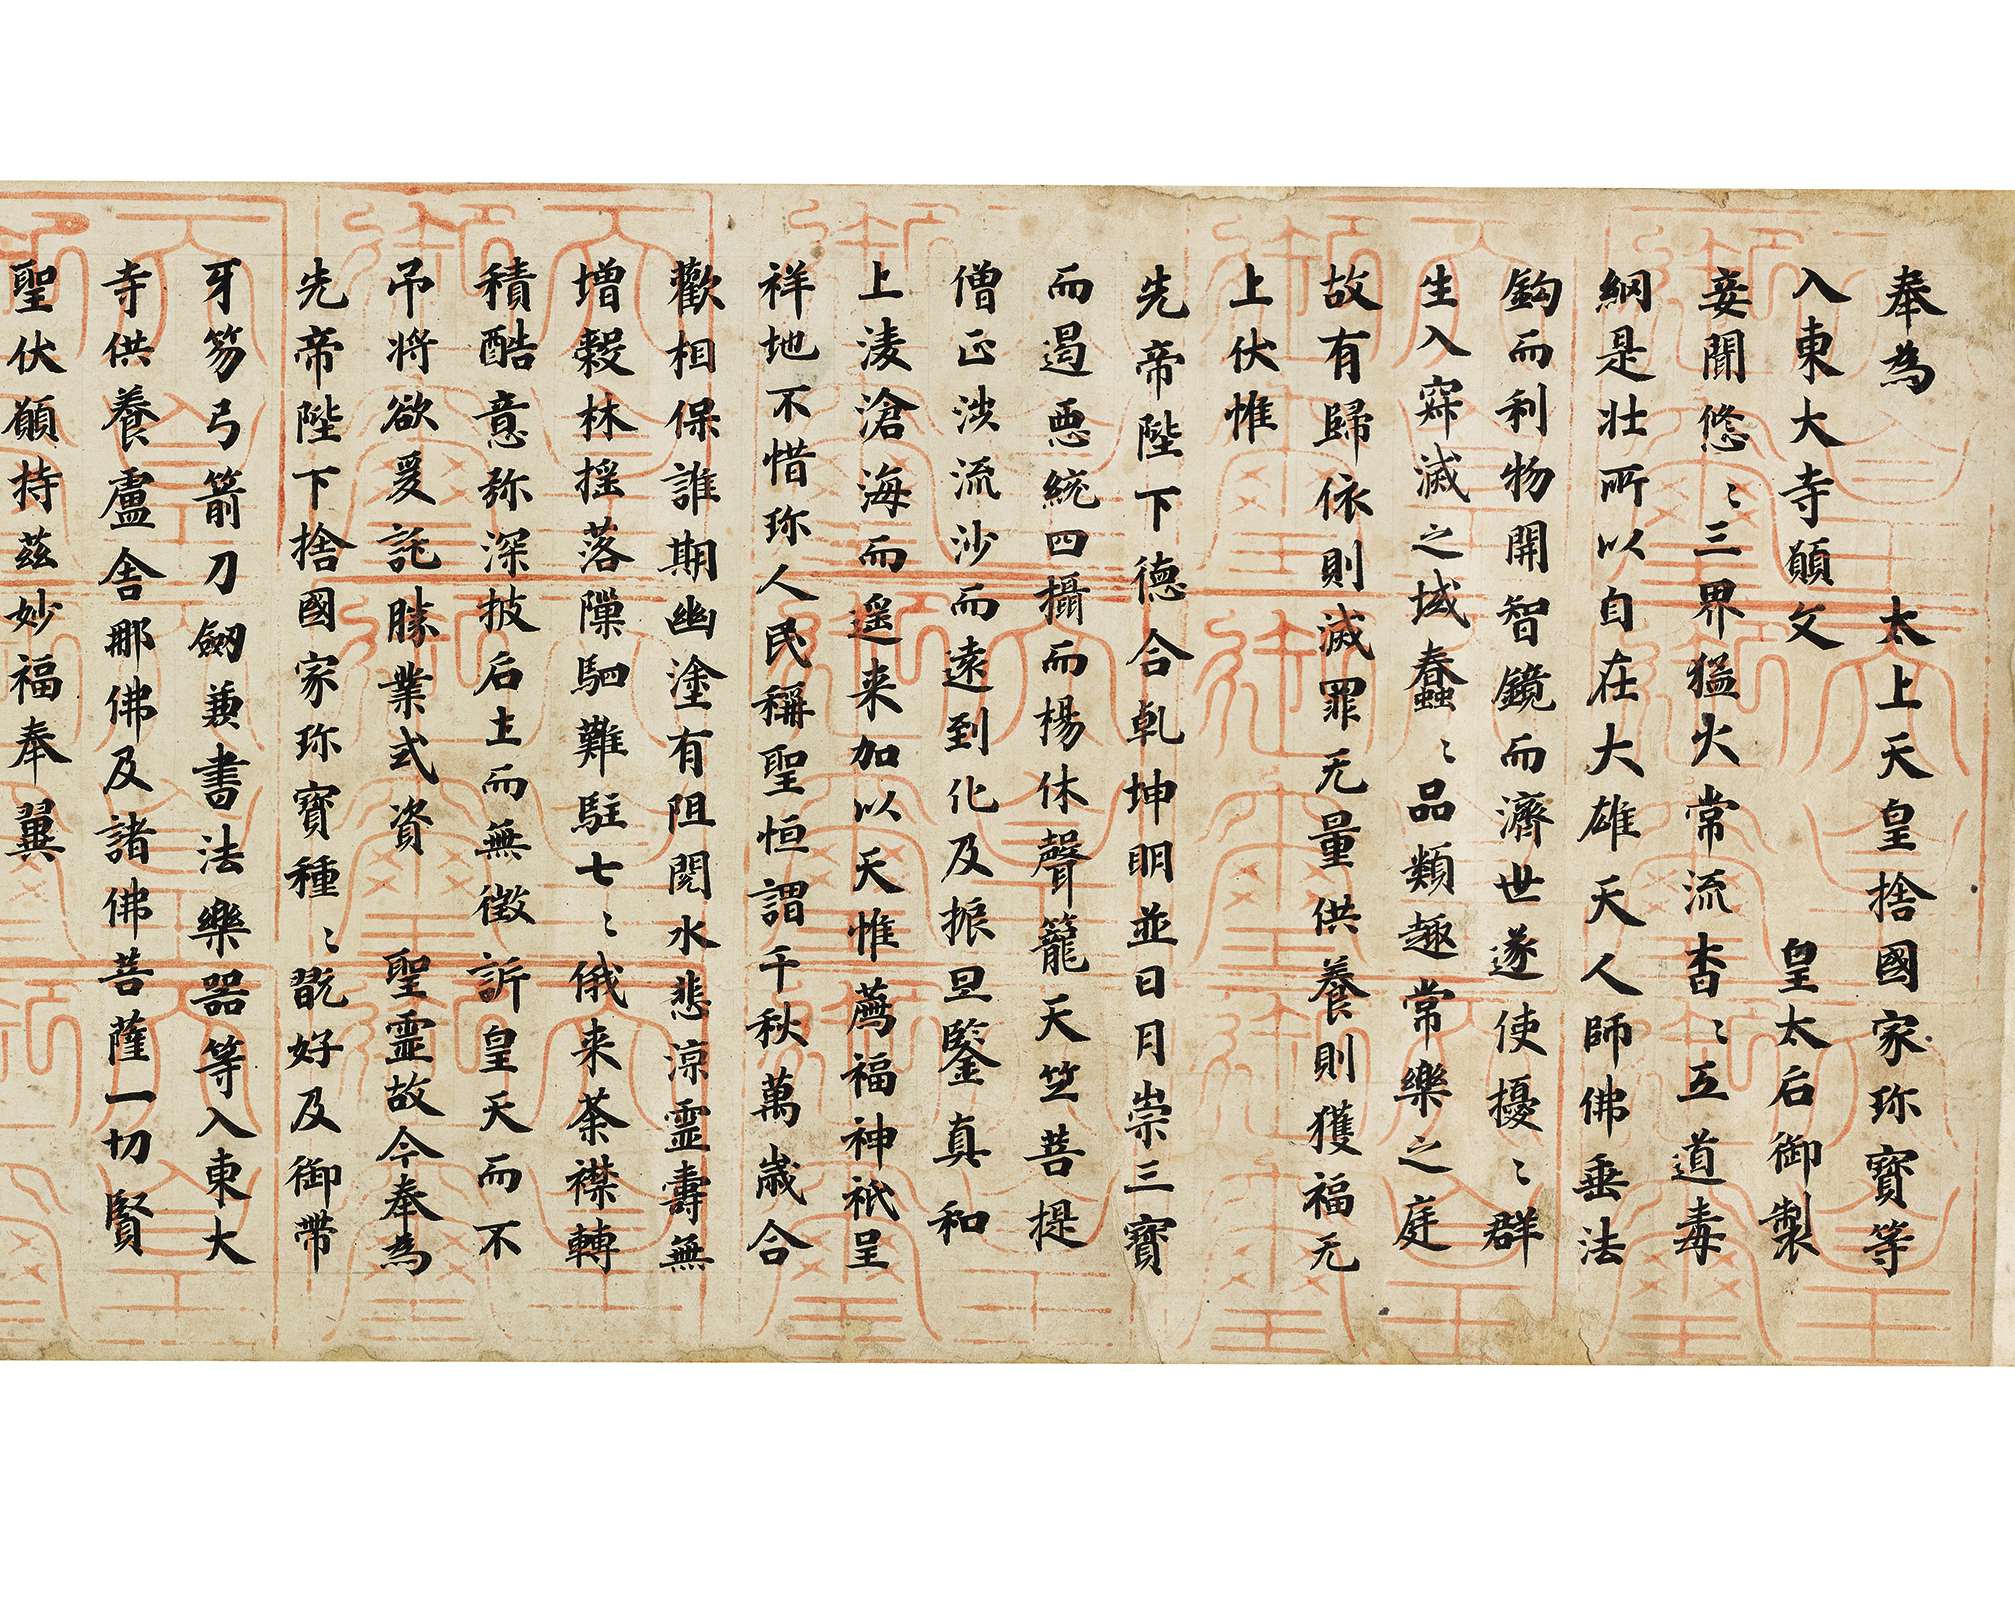 奉為　太上天皇捨國家珎寶等
入東大寺願文　皇太后御製
妾聞悠〻三界猛火常流杳〻五道毒
網是壮所以自在大雄天人師佛垂法
鈎而利物開智鏡而濟世遂使擾〻群
生入寂滅之域蠢〻品類趣常樂之庭
故有歸依則滅罪无量供養則獲福无
上伏惟
先帝陛下德合乹坤明並日月崇三寶
而遏惡統四攝而楊休聲籠天竺菩提
僧正涉流沙而遠到化及振旦鑒真和
上凌滄海而遥来加以天惟薦福神祇呈
祥地不惜珎人民稱聖恒謂千秋萬歳合
歡相保誰期幽塗有阻閱水悲凉靈壽無
増穀林揺落隟駟難駐七〻俄来荼襟轉
積酷意弥深披后土而無徴訴皇天而不
吊将欲爰託勝業式資　聖靈故今奉為
先帝陛下捨國家珎寶種〻翫好及御帶
牙笏弓箭刀劔兼書法樂器等入東大
寺供養盧舎那佛及諸佛菩薩一切賢
聖伏願持茲妙福奉翼